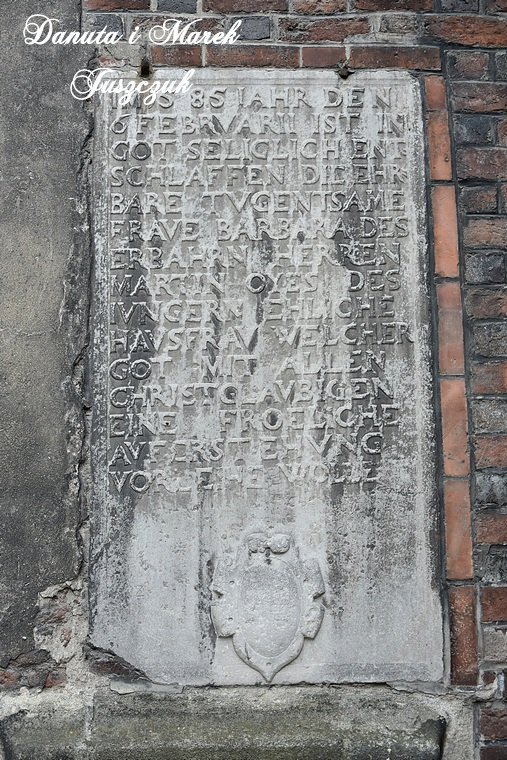 Danuta i Marek
Juszczuk
85 IAHR DEN
6 FEBRVARII IST IN
GOT SELIGLICH ENT
SCHLAFFEN DIE EHR
BARE TVGENTSAME
FRAVE BARBARA DES
ERBAHRN HERREN
MARTIN OYES DES
IVNGERN EHLICHE
HAVSFRAV WELCHER
GOT MIT ALLEN
CHRISTGLAVBIGEN
EINE FROELICHE
AVFERSTEHVNG
VORLEIHE WOLLE